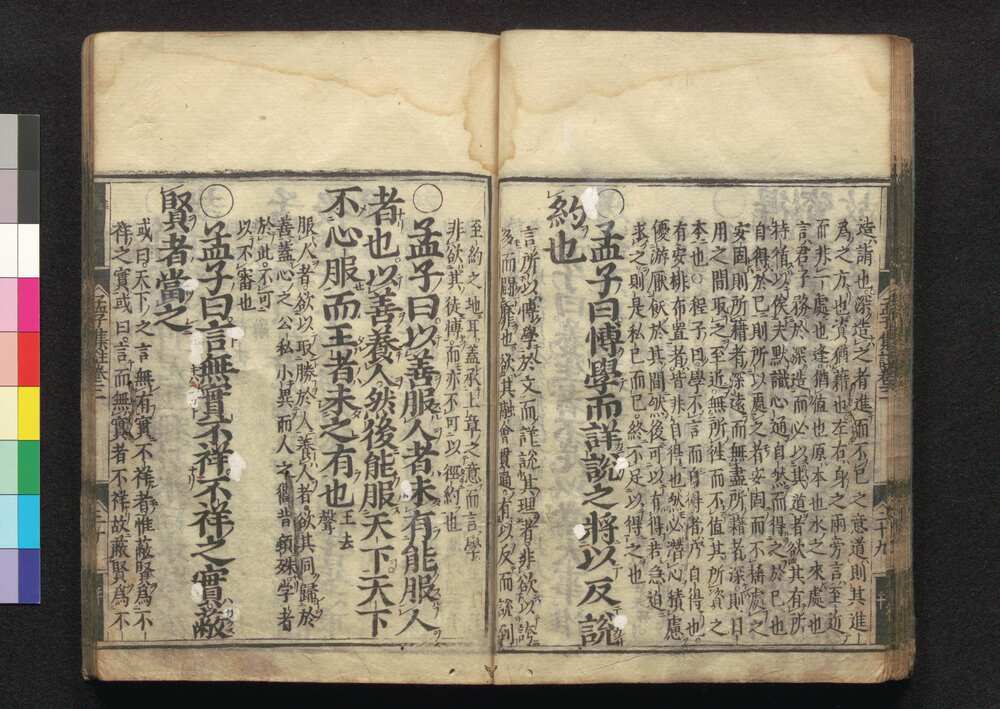 造詣也深造之者進而不已之意道則其進
為之方也資猶藉也左右身之兩旁言至近
而非一處也逢猶値也原本也水之來處也
言君子務於深造而必以其道者欲其有所
持循以俟夫默識心通自然而得之於己也
自得於己則所以處之者安固而不搖處之
安固則所藉者深遠而無盡所藉者深則日
用之間取之至近無所往而不値其所資之
本也○程子曰學不言而自得者乃自得也
有安排布置者皆非自得也然必潛心積慮
優游厭飫於其間然後可以有得若急迫
求之則是私己而已終不足以得之也
○孟子曰博學而詳說之將以反說
約也
言所以博學於文而詳說其理者非欲以誇
多而鬪靡也欲其融會貫通有以反而說到
至約之地耳蓋承上章之意而言學
非欲其徒博而亦不可以徑約也
○孟子曰以善服人者未有能服人
者也以善養人然後能服天下天下
不心服而王者未之有也王去聲
服人者欲以取勝於人養人者欲其同歸於
善蓋心之公私小異而人之嚮背頓殊學者
於此不可
以不審也
○孟子曰言無實不祥不祥之實蔽
賢者當之
或曰天下之言無有實不祥者惟蔽賢為不
祥之實或曰言而無實者不祥故蔽賢為不
二十